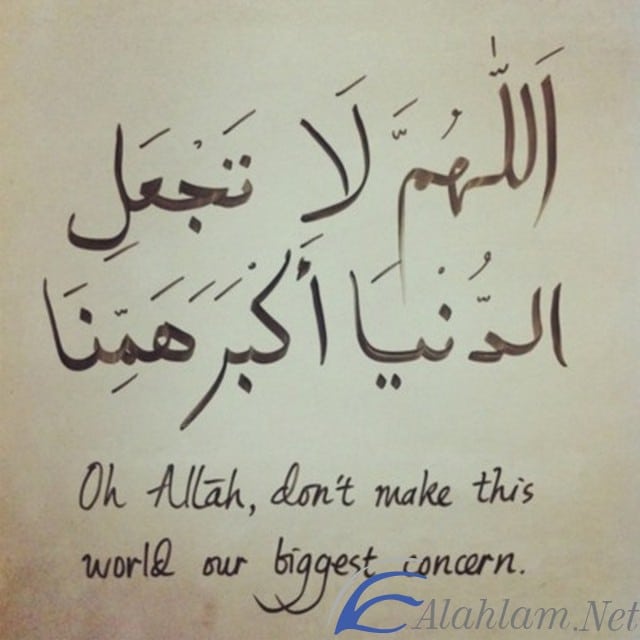 اَللّٰهُمَّ لَا تَجْعَلِ
الدُّنْيَا أَكْبَرَ هَمِّنَا
Oh Allāh, don't make this
world our biggest concern.
Alahlam.Net